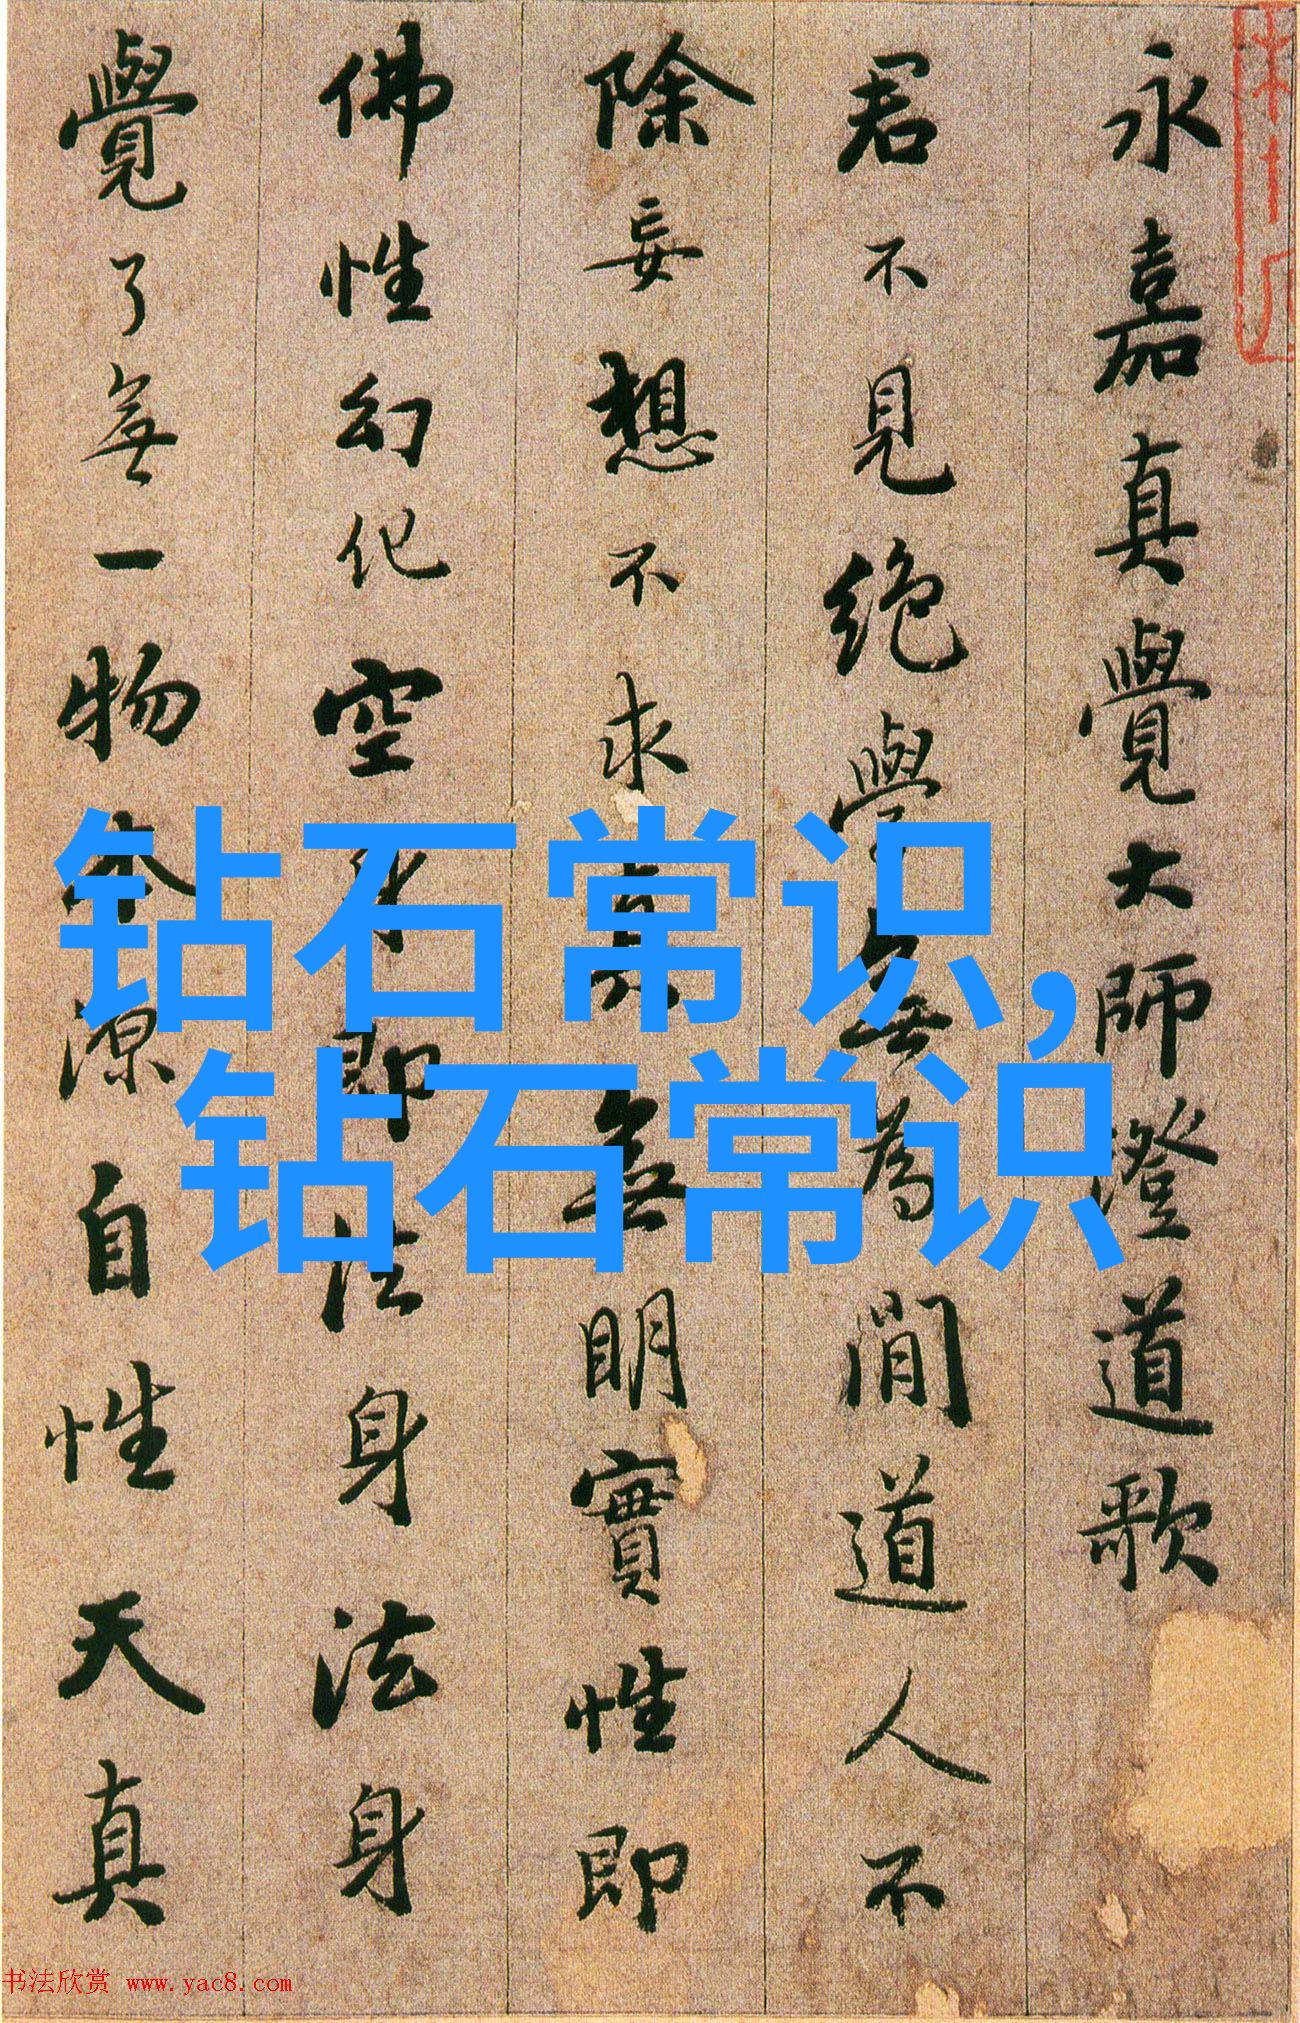 永嘉真覺大師澄道歌
君不見絶學無為閒道人不
除妄想不求真無明實性即
佛性幻化空身即法身法身
覺了無一物本源自性天真
钻石常识,
钻石常识
书法欣赏 www.yac8.com